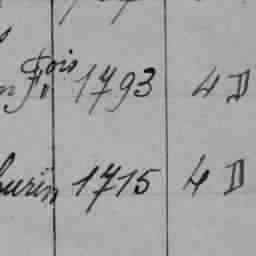 n Fois 1793 4 D
hurin 1715 4 D